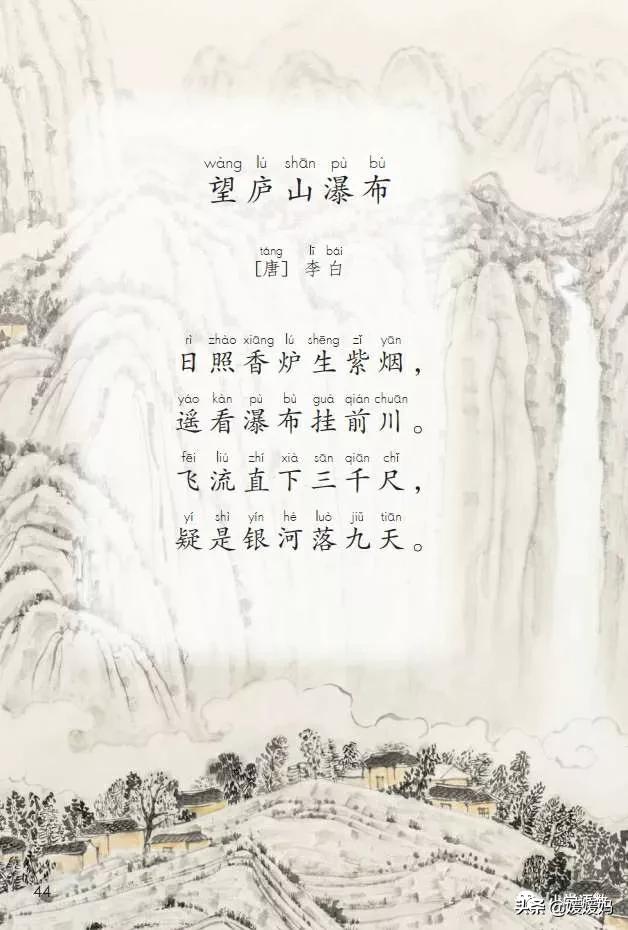 wàng lú shān pù bù
望庐山瀑布
táng lǐ bái
[唐] 李白
rì zhào xiāng lú shēng zǐ yān
日照香炉生紫烟，
yáo kàn pù bù guà qián chuān
遥看瀑布挂前川。
fēi liú zhí xià sān qiān chǐ
飞流直下三千尺，
yí shì yín hé luò jiǔ tiān
疑是银河落九天。
44
头条 @媛媛妈